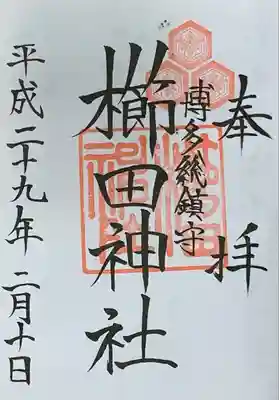 奉拝
博多総鎮守
櫛田神社
平成二十九年二月十日